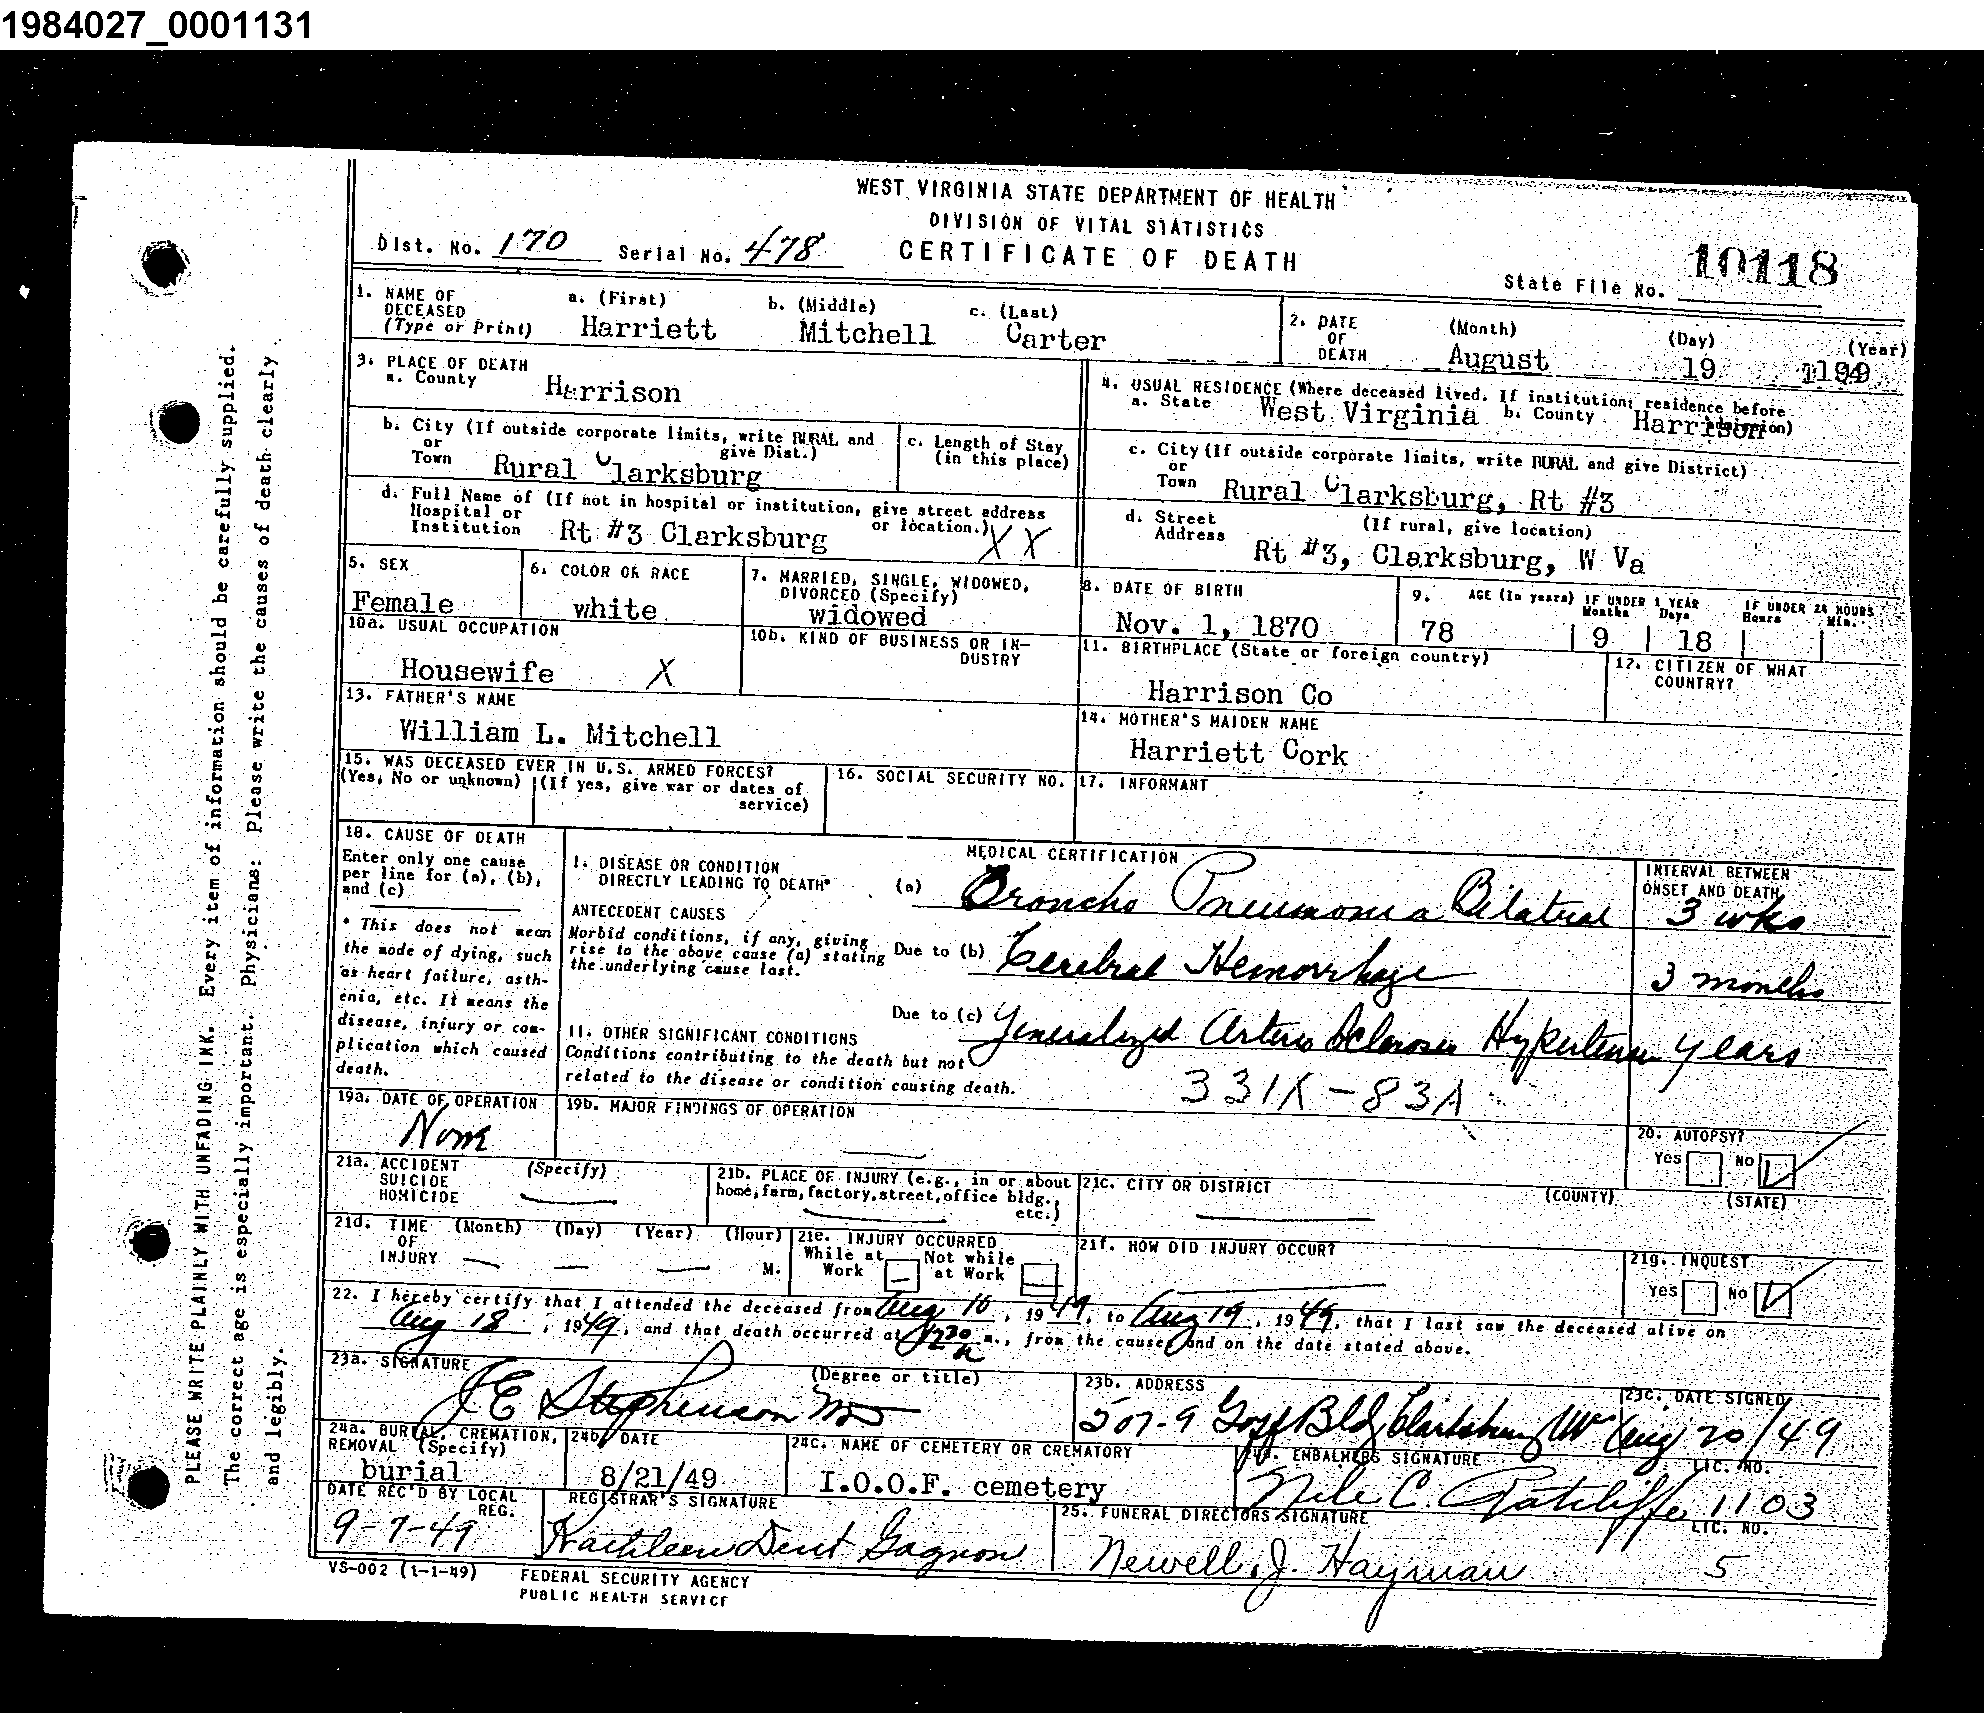 1984027_0001131
WEST VIRGINIA STATE DEPARTMENT OF HEALTH
DIVISION OF VITAL STATISTICS
CERTIFICATE OF DEATH
Dist. No. 170 Serial No. 478
State File No. 10118
1. NAME OF DECEASED (Type or Print)
a. (First) b. (Middle) c. (Last)
Harriett Mitchell Carter
2. DATE OF DEATH (Month) (Day) (Year)
August 19
3. PLACE OF DEATH
a. County Harrison
4. USUAL RESIDENCE (Where deceased lived. If institution: residence before admission)
a. State West Virginia b. County Harrison
b. City (If outside corporate limits, write RURAL and give Dist.)
or Town Rural Clarksburg
c. Length of Stay (in this place)
c. City (If outside corporate limits, write RURAL and give District)
or Town Rural Clarksburg, Rt #3
d. Full Name of Hospital or Institution (If not in hospital or institution, give street address or location.)
Rt #3 Clarksburg XX
d. Street Address (If rural, give location)
Rt #3, Clarksburg, W Va
5. SEX
Female
6. COLOR OR RACE
white
7. MARRIED, SINGLE, WIDOWED, DIVORCED (Specify)
widowed
8. DATE OF BIRTH
Nov. 1, 1870
9. AGE (In years) IF UNDER 1 YEAR Months Days IF UNDER 24 HOURS Hours Min.
78 9 18
10a. USUAL OCCUPATION
Housewife X
10b. KIND OF BUSINESS OR INDUSTRY
11. BIRTHPLACE (State or foreign country)
Harrison Co
12. CITIZEN OF WHAT COUNTRY?
13. FATHER'S NAME
William L. Mitchell
14. MOTHER'S MAIDEN NAME
Harriett Cork
15. WAS DECEASED EVER IN U.S. ARMED FORCES?
(Yes, No or unknown) (If yes, give war or dates of service)
16. SOCIAL SECURITY NO.
17. INFORMANT
18. CAUSE OF DEATH
Enter only one cause per line for (a), (b), and (c)
* This does not mean the mode of dying, such as heart failure, asthenia, etc. It means the disease, injury or complication which caused death.
MEDICAL CERTIFICATION
INTERVAL BETWEEN ONSET AND DEATH
I. DISEASE OR CONDITION DIRECTLY LEADING TO DEATH*
(a) Broncho Pneumonia Bilateral 3 wks
ANTECEDENT CAUSES
Morbid conditions, if any, giving rise to the above cause (a) stating the underlying cause last.
Due to (b) Cerebral Hemorrhage 3 months
Due to (c) Generalized Arterio Sclerosis Hypertension years
II. OTHER SIGNIFICANT CONDITIONS
Conditions contributing to the death but not related to the disease or condition causing death.
331X-83A
19a. DATE OF OPERATION
None
19b. MAJOR FINDINGS OF OPERATION
20. AUTOPSY?
Yes No
21a. ACCIDENT SUICIDE HOMICIDE (Specify)
21b. PLACE OF INJURY (e.g., in or about home, farm, factory, street, office bldg., etc.)
21c. CITY OR DISTRICT (COUNTY) (STATE)
21d. TIME OF INJURY (Month) (Day) (Year) (Hour) M.
21e. INJURY OCCURRED
While at Work Not while at Work
21f. HOW DID INJURY OCCUR?
21g. INQUEST
Yes No
22. I hereby certify that I attended the deceased from Aug 10, 1949, to Aug 19, 1949, that I last saw the deceased alive on
Aug 18, 1949, and that death occurred at m., from the cause and on the date stated above.
23a. SIGNATURE (Degree or title)
JE Stephenson MD
23b. ADDRESS
507-9 Goff Bldg Clarksburg WV
23c. DATE SIGNED
Aug 20/49
24a. BURIAL, CREMATION, REMOVAL (Specify)
burial
24b. DATE
8/21/49
24c. NAME OF CEMETERY OR CREMATORY
I.O.O.F. cemetery
EMBALMERS SIGNATURE LIC. NO.
Nile C. Ratcliffe 1103
DATE REC'D BY LOCAL REG.
9-7-49
REGISTRAR'S SIGNATURE
Kathleen Dent Gagnon
25. FUNERAL DIRECTORS SIGNATURE LIC. NO.
Newell J. Hayman 5
VS-002 (1-1-49) FEDERAL SECURITY AGENCY
PUBLIC HEALTH SERVICE
PLEASE WRITE PLAINLY WITH UNFADING INK. Every item of information should be carefully supplied.
The correct age is especially important. Physicians: Please write the causes of death clearly
and legibly.